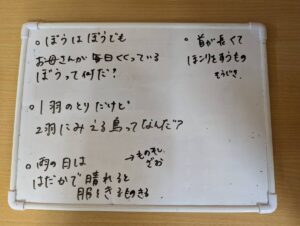 ○ ぼうはぼうでも
お母さんが毎日くくっている
ぼうって何だ？
○ 1羽のとりだけど
2羽にみえる鳥ってなんだ？
○ 雨の日は
はだかで晴れると
服をきるものきる
→ものほし
ざお
○ 首が長くて
ほこりをすうもの
そうじき